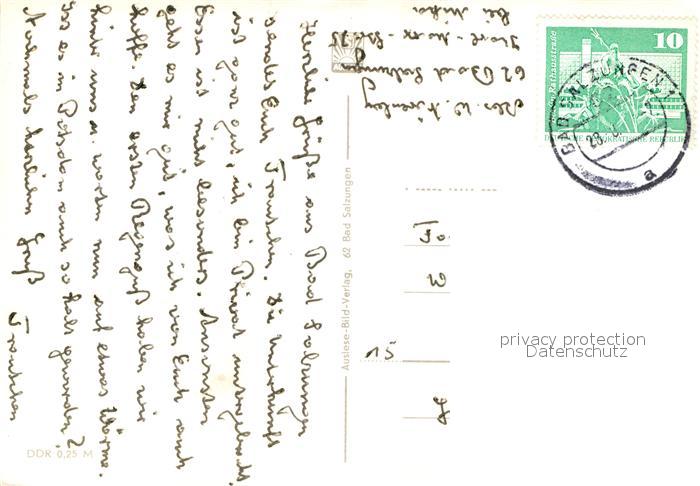 Herzliche Grüße aus Bad Salzungen
sendet Euch Trautchen. Die Unterkunft
ist ganz gut, ich bin Privat untergebracht.
Essen ist nicht besonders. Ansonsten
geht es mir gut, was ich von Euch auch
hoffe. Den ersten Regenguß haben wir
hinter uns u. warten nun auf etwas Wärme.
Ist es in Potsdam auch so kalt geworden?
Nochmals herzlichen Gruß
Trautchen
DDR 0,25 M
Auslese-Bild-Verlag, 62 Bad Salzungen
Abs. W.
62 Bad Salzungen
Karl-Marx-Str. 75
bei
10
Rathausstraße
DEUTSCHE DEMOKRATISCHE REPUBLIK
BAD SALZUNGEN
28.
a
Fo
15
privacy protection
Datenschutz